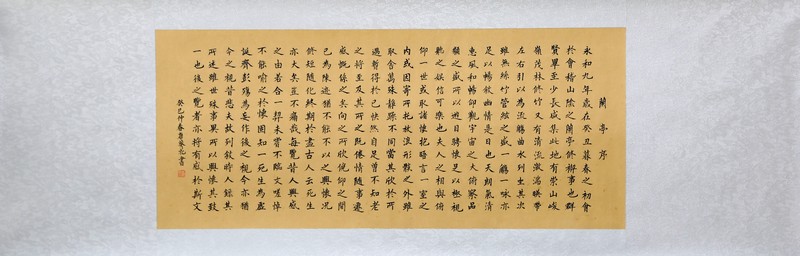 蘭亭序
永和九年歲在癸丑暮春之初會
於會稽山陰之蘭亭修稧事也群
賢畢至少長咸集此地有崇山峻
嶺茂林修竹又有清流激湍暎帶
左右引以為流觴曲水列坐其次
雖無絲竹管絃之盛一觴一詠亦
足以暢敘幽情是日也天朗氣清
惠風和暢仰觀宇宙之大俯察品
類之盛所以遊目騁懷足以極視
聽之娛信可樂也夫人之相與俯
仰一世或取諸懷抱晤言一室之
內或因寄所托放浪形骸之外雖
取舍萬殊靜躁不同當其欣於所
遇暫得於己快然自足曾不知老
之將至及其所之既倦情隨事遷
感慨係之矣向之所欣俛仰之間
已為陳迹猶不能不以之興懷況
修短隨化終期於盡古人云死生
亦大矣豈不痛哉每覽昔人興感
之由若合一契未嘗不臨文嗟悼
不能喻之於懷固知一死生為虛
誕齊彭殤為妄作後之視今亦猶
今之視昔悲夫故列敘時人錄其
所述雖世殊事異所以興懷其致
一也後之覽者亦將有感於斯文
癸巳仲春書